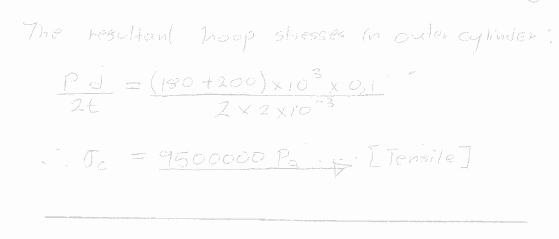 The resultant hoop stresses in outer cylinder:
P d / 2t = (180 + 200) × 10³ × 0.1 / 2 × 2 × 10⁻³
∴ σc = 9500000 Pa ... [Tensile]